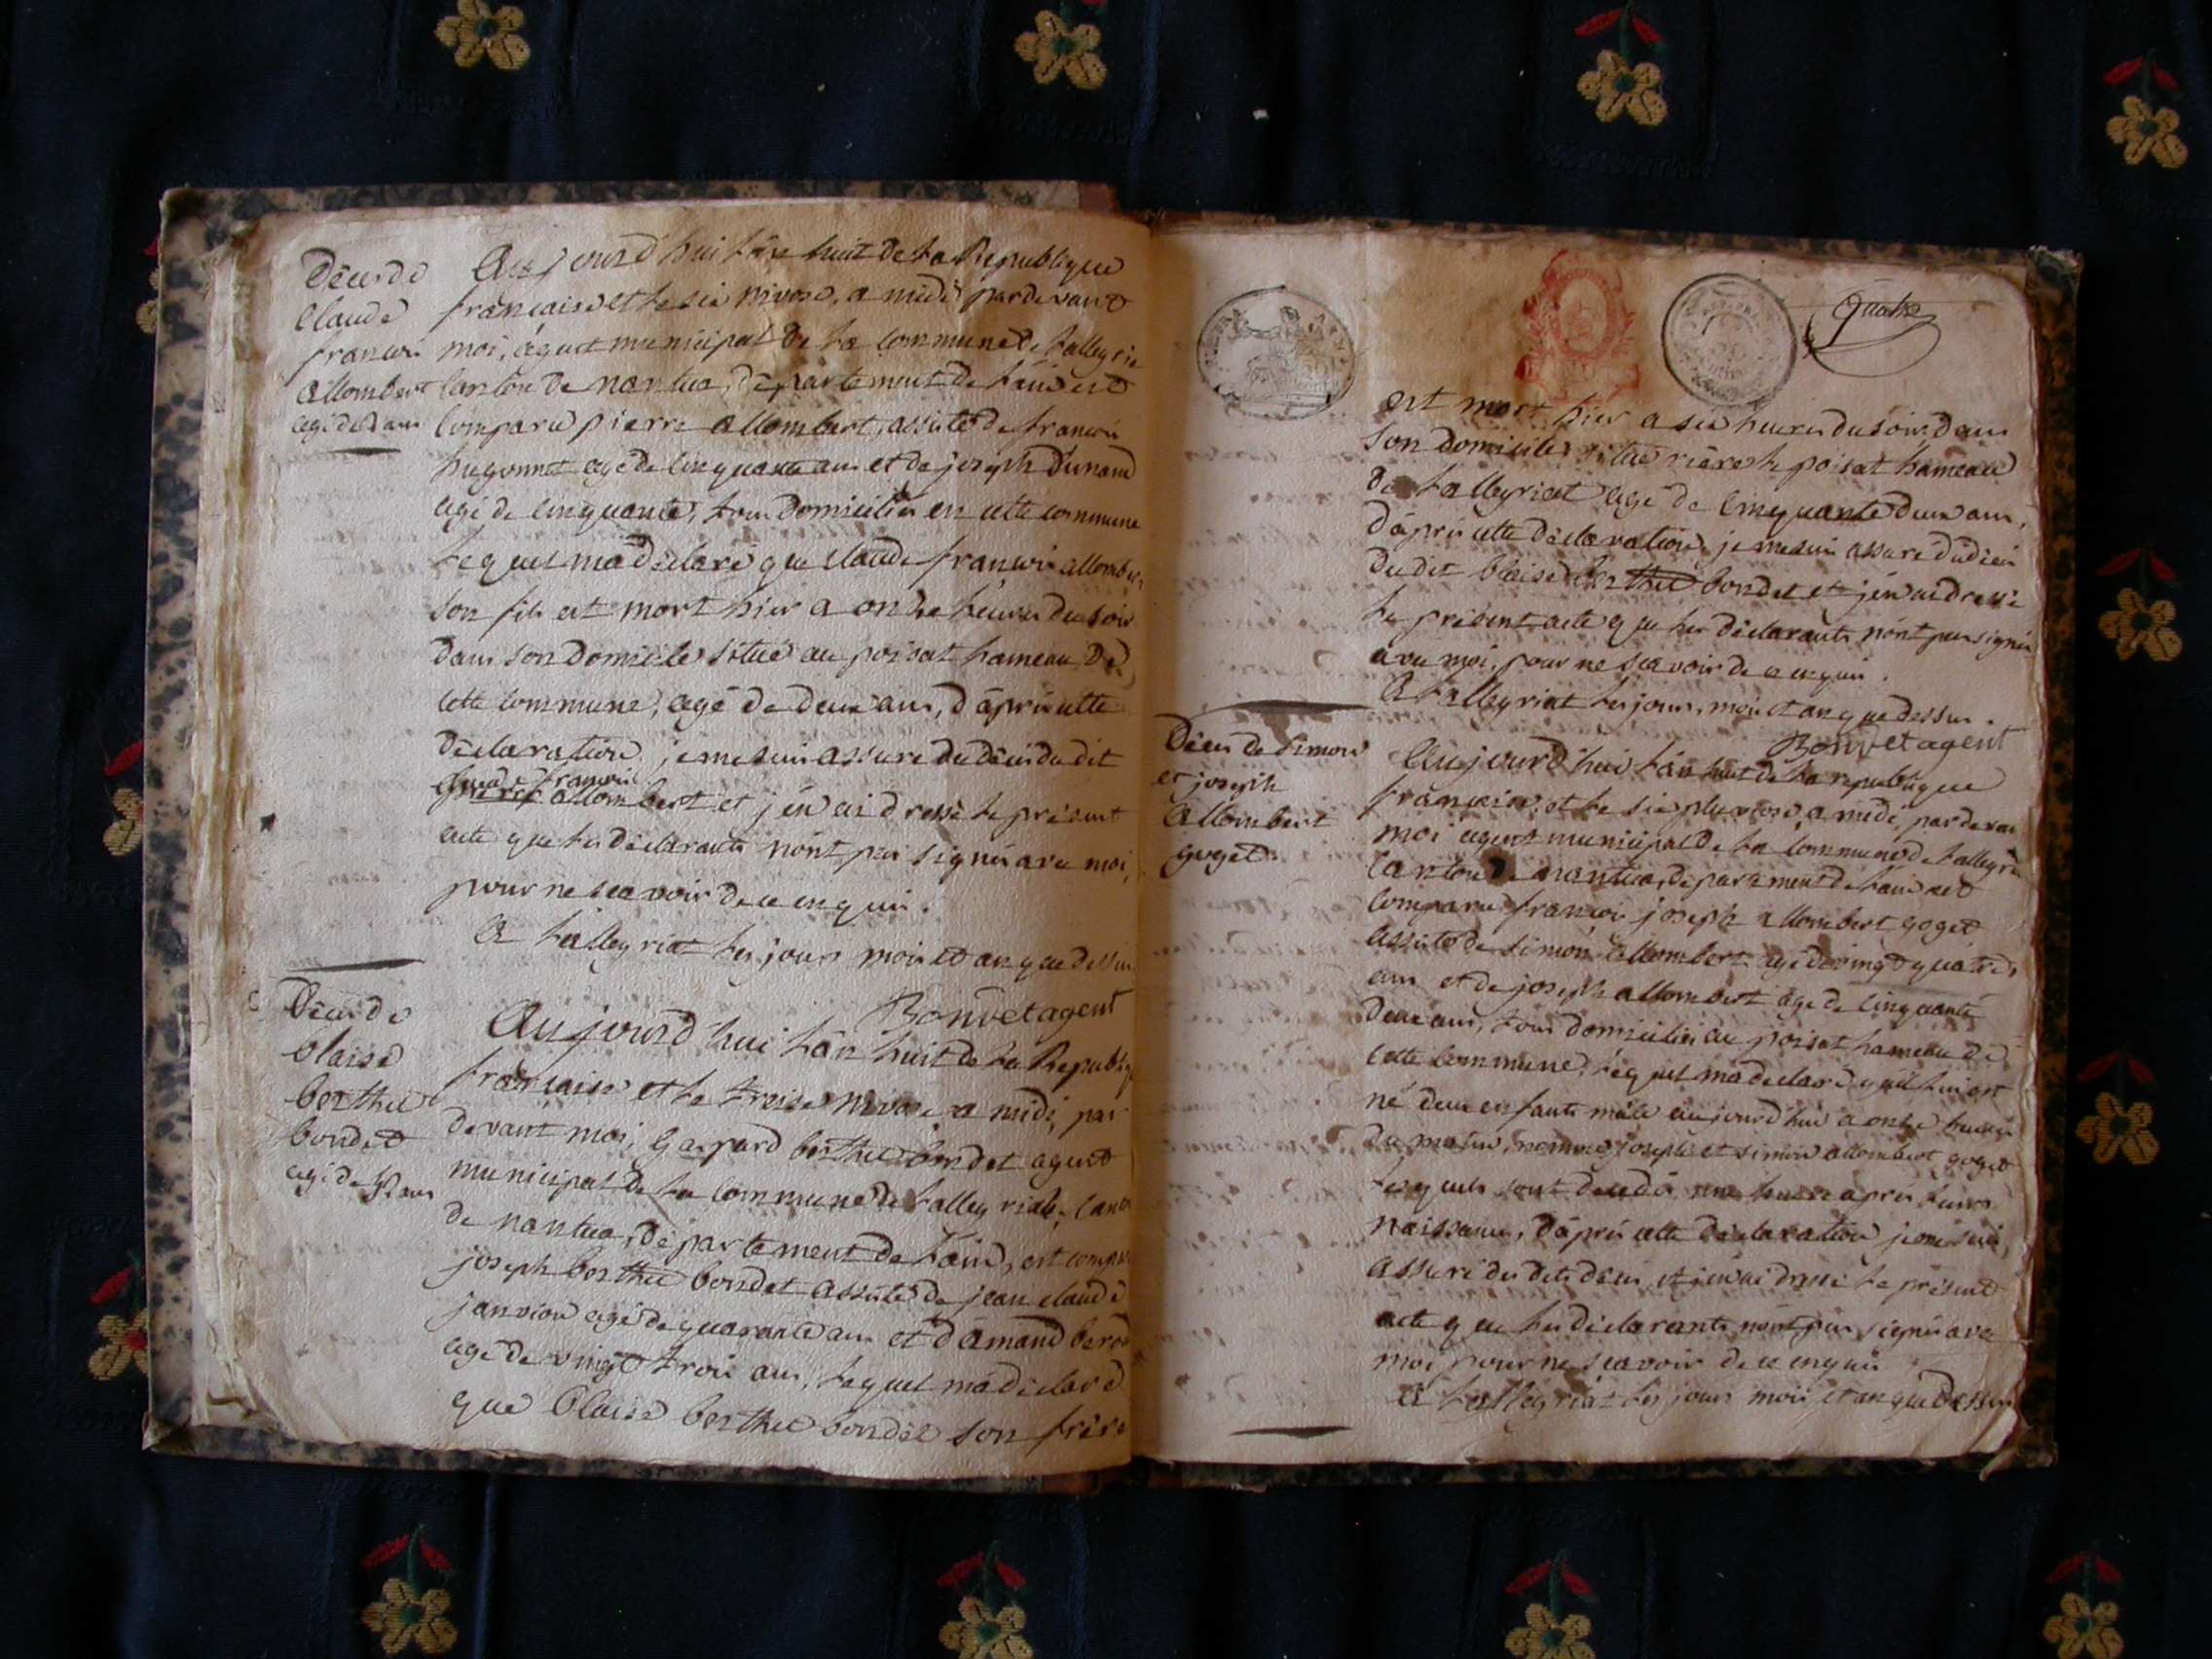 Décès de
Claude
françois
allombert
agé de 2 ans
Aujourd'hui l'an huit de la Republique
française et le six nivose, a midi pardevant
moi, agent municipal de la Commune de Lalleyriat
Canton de nantua, département de l'ain est
Comparu pierre allombert, assisté de françois
hugonnet agé de Cinquante ans et de joseph Dunand
agé de Cinquante, tous domiciliés en cette commune
lequel m'a déclaré que Claude françois allombert
son fils est mort hier a onze heures du soir
dans son domicile situé au poisat hameau de
cette commune, agé de deux ans, d'après cette
déclaration je me suis assuré du décès du dit
Claude françois
pierre allombert et j'en ai dressé le présent
acte que les déclarants n'ont pas signés avec moi,
pour ne scavoir de ce enquis.
A Lalleyriat les jours mois et an que dessus
Bonnet agent
Décès de
blaise
berthet
bondet
agé de 52 ans
Aujourd'hui l'an huit de la Republique
française et le treize nivose a midi, par
devant moi, Gaspard berthet bondet agent
municipal de la Commune de Lalleyriat, Canton
de nantua, département de l'ain, est comparu
joseph berthet bondet assisté de jean claude
janvion agé de quarante ans et d'amand
agé de vingt trois ans, lequel m'a déclaré
que blaise berthet bondet son frère
quatre
est mort hier a six heures du soir, dans
son domicile situé rière le poisat hameau
de Lalleyriat agé de Cinquante deux ans,
d'après cette déclaration, je me suis assuré du décès
du dit blaise berthet bondet et j'en ai dressé
le présent acte que les déclarants n'ont pas signés
avec moi, pour ne scavoir de ce enquis.
A Lalleyriat les jours, mois et an que dessus.
Bonnet agent
Décès de Simon
et joseph
allombert
goget
Aujourd'hui l'an huit de la republique
française, et le six pluviose, a midi, pardevant
moi agent municipal de la Commune de Lalleyriat
Canton de nantua, département de l'ain est
Comparu françois joseph allombert goget
assisté de simon allombert agé de vingt quatre
ans et de joseph allombert agé de Cinquante
deux ans, tous domiciliés au poisat hameau de
cette Commune, lequel m'a déclaré qu'il lui est
né deux enfants mâle aujourd'hui a onze heures
du matin, nommé joseph et simon allombert goget
lesquels sont décédés une heure après leurs
naissance, d'après cette déclaration je me suis
assuré des dits décès, et j'en ai dressé le présent
acte que les déclarants n'ont pas signés avec
moi pour ne scavoir de ce enquis
A Lalleyriat les jours mois et an que dessus